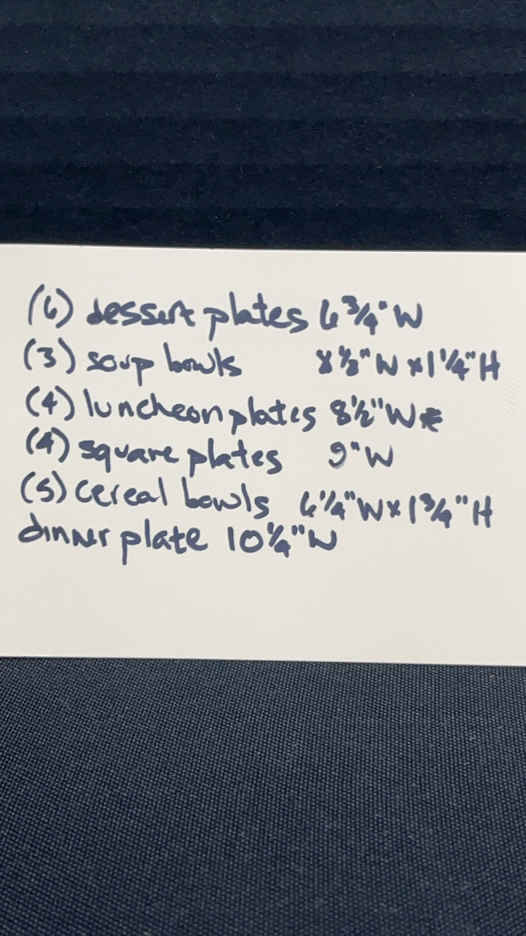 (6) dessert plates 6 3/4" W
(3) soup bowls 8 1/2" W x 1 1/4" H
(4) luncheon plates 8 1/2" W
(4) square plates 9" W
(5) cereal bowls 6 1/4" W x 1 3/4" H
dinner plate 10 1/4" W